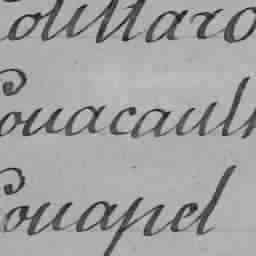 Couillard
Couacault
Couapel